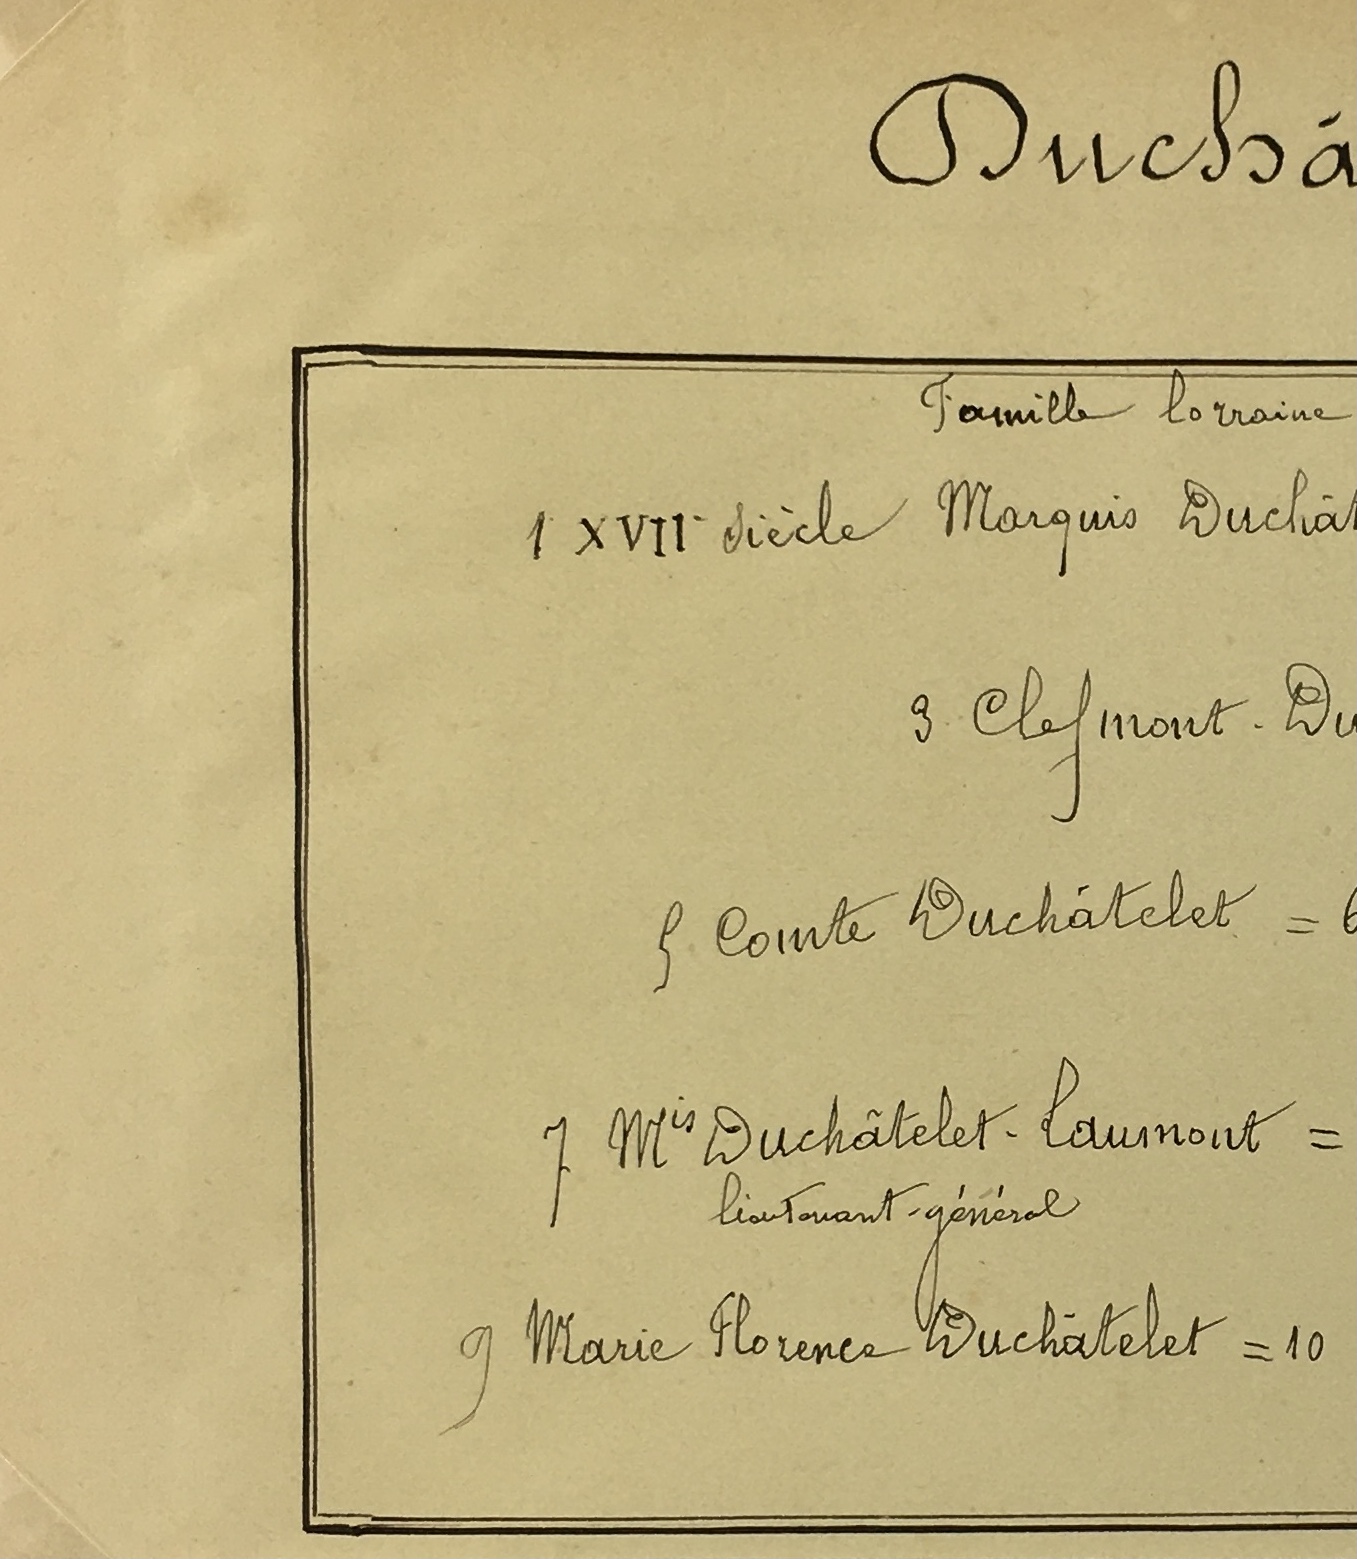 Duchâ
Famille lorraine
1 XVIIe siècle Marquis Duchât
3 Clefmont - Du
5 Comte Duchâtelet = 6
7 Mis Duchâtelet - Laumont =
lieutenant-général
9 Marie Florence Duchâtelet = 10